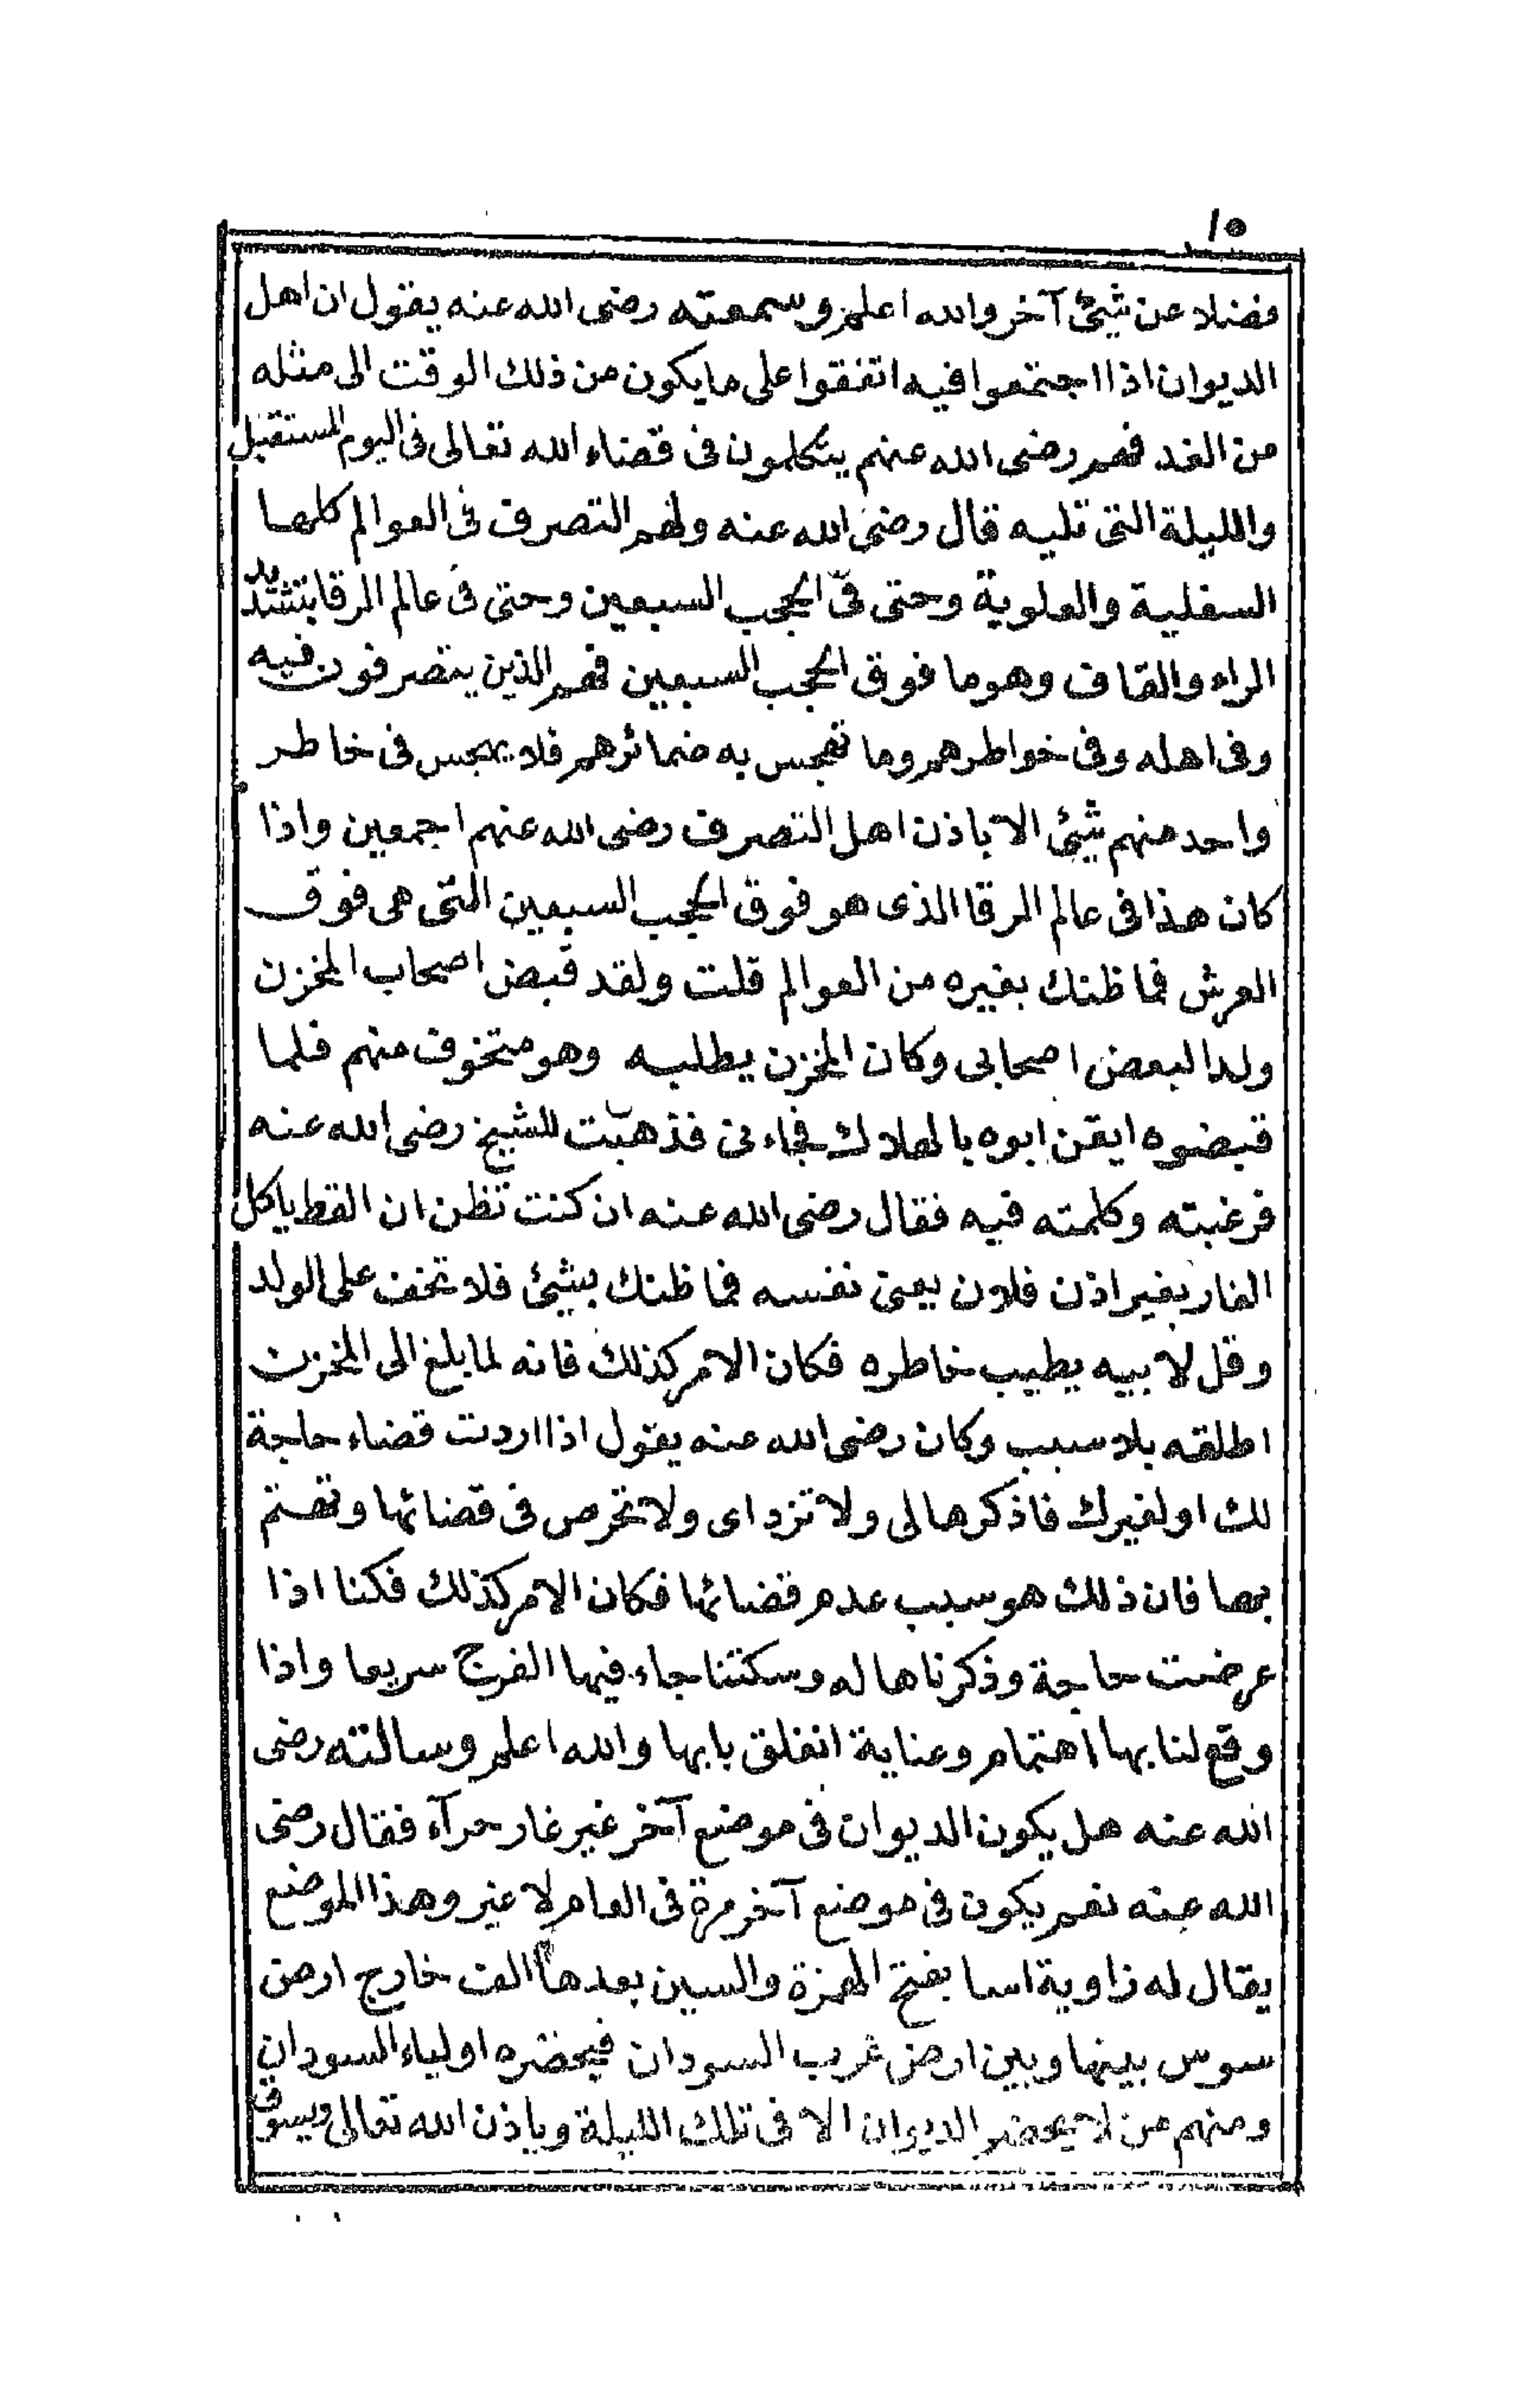 ١٥
فضلا عن شيئ آخر والله اعلم وسمعته رضى الله عنه يقول ان اهل
الديوان اذا اجتمعوا فيه اتفقوا على ما يكون من ذلك الوقت الى مثله
من الغد فهم رضى الله عنهم يتكلمون فى قضاء الله تعالى فى اليوم المستقبل
والليلة التى تليه قال رضى الله عنه ولهم التصرف فى العوالم كلها
السفلية والعلوية وحتى فى الحجب السبعين وحتى فى عالم الرقا بتشديد
الراء والقاف وهو ما فوق الحجب السبعين فهم الذين يتصرفون فيه
وفى اهله وفى خواطرهم وما تهجس به ضمائرهم فلا يهجس فى خاطر
واحد منهم شيئ الا باذن اهل التصرف رضى الله عنهم اجمعين واذا
كان هذا فى عالم الرقا الذى هو فوق الحجب السبعين التى هى فوق
العرش فما ظنك بغيره من العوالم قلت ولقد قبض اصحاب المخزن
ولدا لبعض اصحابى وكان المخزن يطلبه وهو متخوف منهم فلما
قبضوه ايقن ابوه بالهلاك فجاءنى فذهبت للشيخ رضى الله عنه
فرغبته وكلمته فيه فقال رضى الله عنه ان كنت تظن ان القط ياكل
الفار بغير اذن فلان يعنى نفسه فما ظنك بشيئ فلا تخف على الولد
وقل لابيه يطيب خاطره فكان الامر كذلك فانه لما بلغ الى المخزن
اطلقه بلا سبب وكان رضى الله عنه يقول اذا اردت قضاء حاجة
لك او لغيرك فاذكرها لى ولا تزد اى ولا تحرص فى قضائها وتهتم
بها فان ذلك هو سبب عدم قضائها فكان الامر كذلك فكنا اذا
عرضت حاجة وذكرناها له وسكتنا جاء فيها الفرج سريعا واذا
وقع لنا بها اهتمام وعناية انغلق بابها والله اعلم وسالته رضى
الله عنه هل يكون الديوان فى موضع آخر غير غار حرآء فقال رضى
الله عنه نعم يكون فى موضع آخر مرة فى العام لا غير وهذا الموضع
يقال له زاوية اسا بفتح الهمزة والسين بعدها الف خارج ارض
سوس بينها وبين ارض غرب السودان فيحضره اولياء السودان
ومنهم من لا يحضر الديوان الا فى تلك الليلة وباذن الله تعالى ويسوق